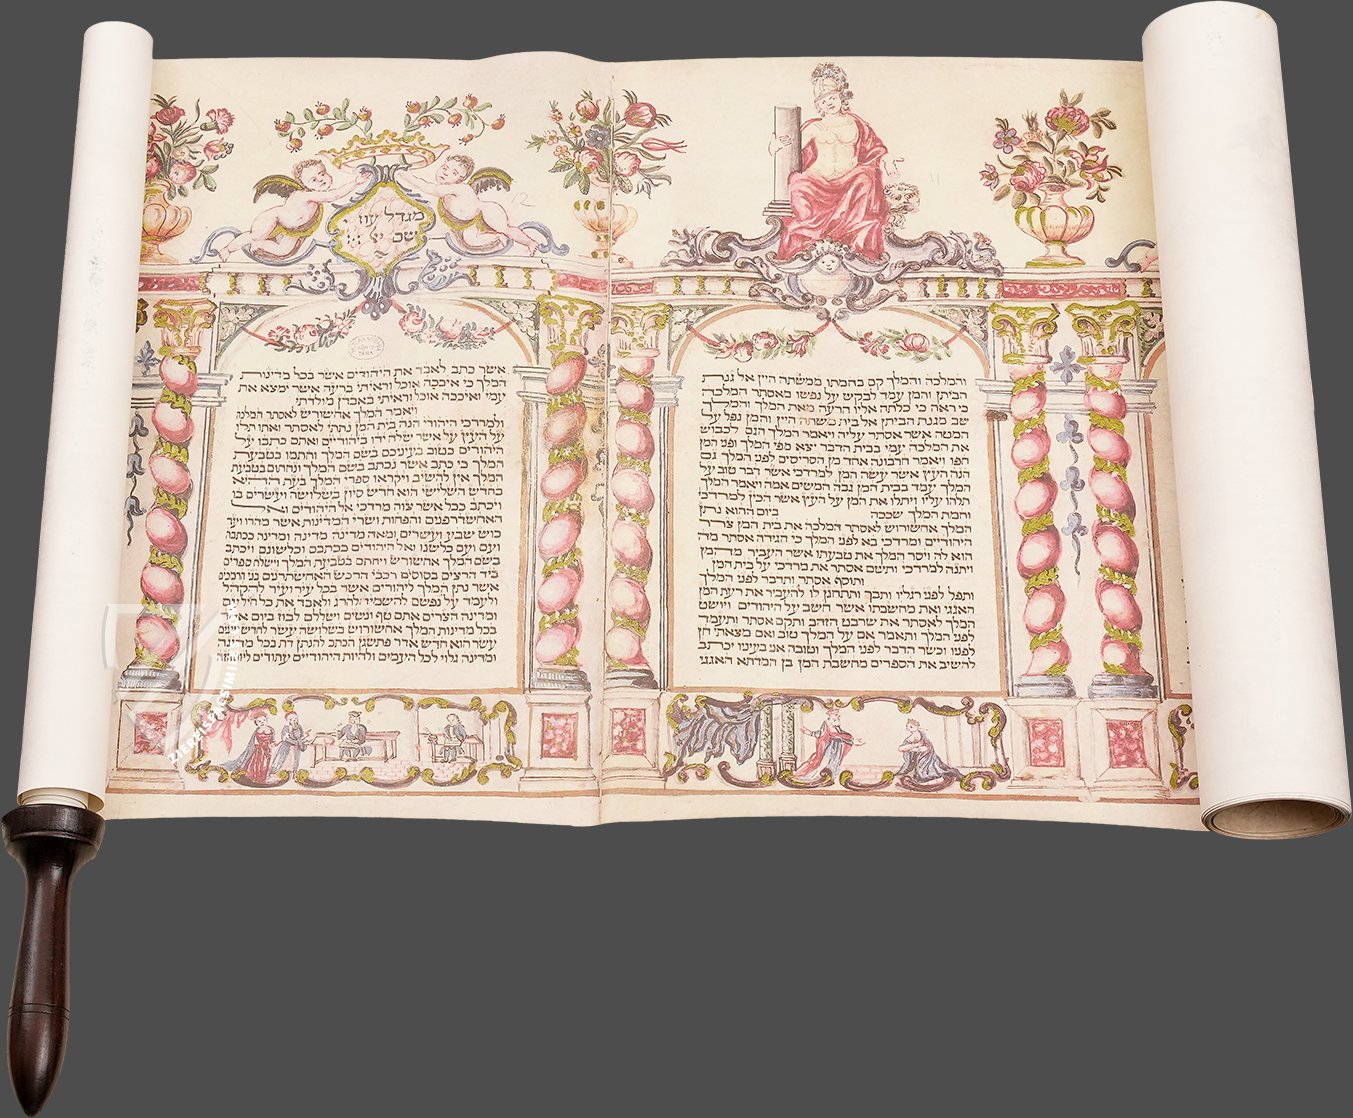 והמלכה והמלך קם בחמתו ממשתה היין אל גנת
הביתן והמן עמד לבקש על נפשו מאסתר המלכה
כי ראה כי כלתה אליו הרעה מאת המלך והמלך
שב מגנת הביתן אל בית משתה היין והמן נפל על
המטה אשר אסתר עליה ויאמר המלך הגם לכבוש
את המלכה עמי בבית הדבר יצא מפי המלך ופני המן
חפו ויאמר חרבונה אחד מן הסריסים לפני המלך גם
הנה העץ אשר עשה המן למרדכי אשר דבר טוב על
המלך עמד בבית המן גבה חמשים אמה ויאמר המלך
תלהו עליו ויתלו את המן על העץ אשר הכין למרדכי
וחמת המלך שככה ביום ההוא נתן
המלך אחשורוש לאסתר המלכה את בית המן צרר
היהודיים ומרדכי בא לפני המלך כי הגידה אסתר מה
הוא לה ויסר המלך את טבעתו אשר העביר מהמן
ויתנה למרדכי ותשם אסתר את מרדכי על בית המן
ותוסף אסתר ותדבר לפני המלך
ותפל לפני רגליו ותבך ותתחנן לו להעביר את רעת המן
האגגי ואת מחשבתו אשר חשב על היהודים ויושט
המלך לאסתר את שרבט הזהב ותקם אסתר ותעמד
לפני המלך ותאמר אם על המלך טוב ואם מצאתי חן
לפניו וכשר הדבר לפני המלך וטובה אני בעיניו יכתב
להשיב את הספרים מחשבת המן בן המדתא האגגי
מגדל עוז
אשר כתב לאבד את היהודים אשר בכל מדינות
המלך כי איככה אוכל וראיתי ברעה אשר ימצא את
עמי ואיככה אוכל וראיתי באבדן מולדתי
ויאמר המלך אחשורש לאסתר המלכה
ולמרדכי היהודי הנה בית המן נתתי לאסתר ואתו תלו
על העץ על אשר שלח ידו ביהודיים ואתם כתבו על
היהודים כטוב בעיניכם בשם המלך וחתמו בטבעת
המלך כי כתב אשר נכתב בשם המלך ונחתום בטבעת
המלך אין להשיב ויקראו ספרי המלך בעת ההיא
בחדש השלישי הוא חדש סיון בשלושה ועשרים בו
ויכתב ככל אשר צוה מרדכי אל היהודים ואל
האחשדרפנים והפחות ושרי המדינות אשר מהדו ועד
כוש שבע ועשרים ומאה מדינה מדינה ומדינה ככתבה
ועם ועם כלשנו ואל היהודים ככתבם וכלשונם ויכתב
בשם המלך אחשורש ויחתם בטבעת המלך וישלח ספרים
ביד הרצים בסוסים רכבי הרכש האחשתרנים בני הרמכים
אשר נתן המלך ליהודים אשר בכל עיר ועיר להקהל
ולעמד על נפשם להשמיד להרג ולאבד את כל חיל עם
ומדינה הצרים אתם טף ונשים ושללם לבוז ביום אחד
בכל מדינות המלך אחשורוש בשלושה עשר לחדש שנים
עשר הוא חדש אדר פתשגן הכתב להנתן דת בכל מדינה
ומדינה גלוי לכל העמים ולהיות היהודיים עתודים ליום הזה